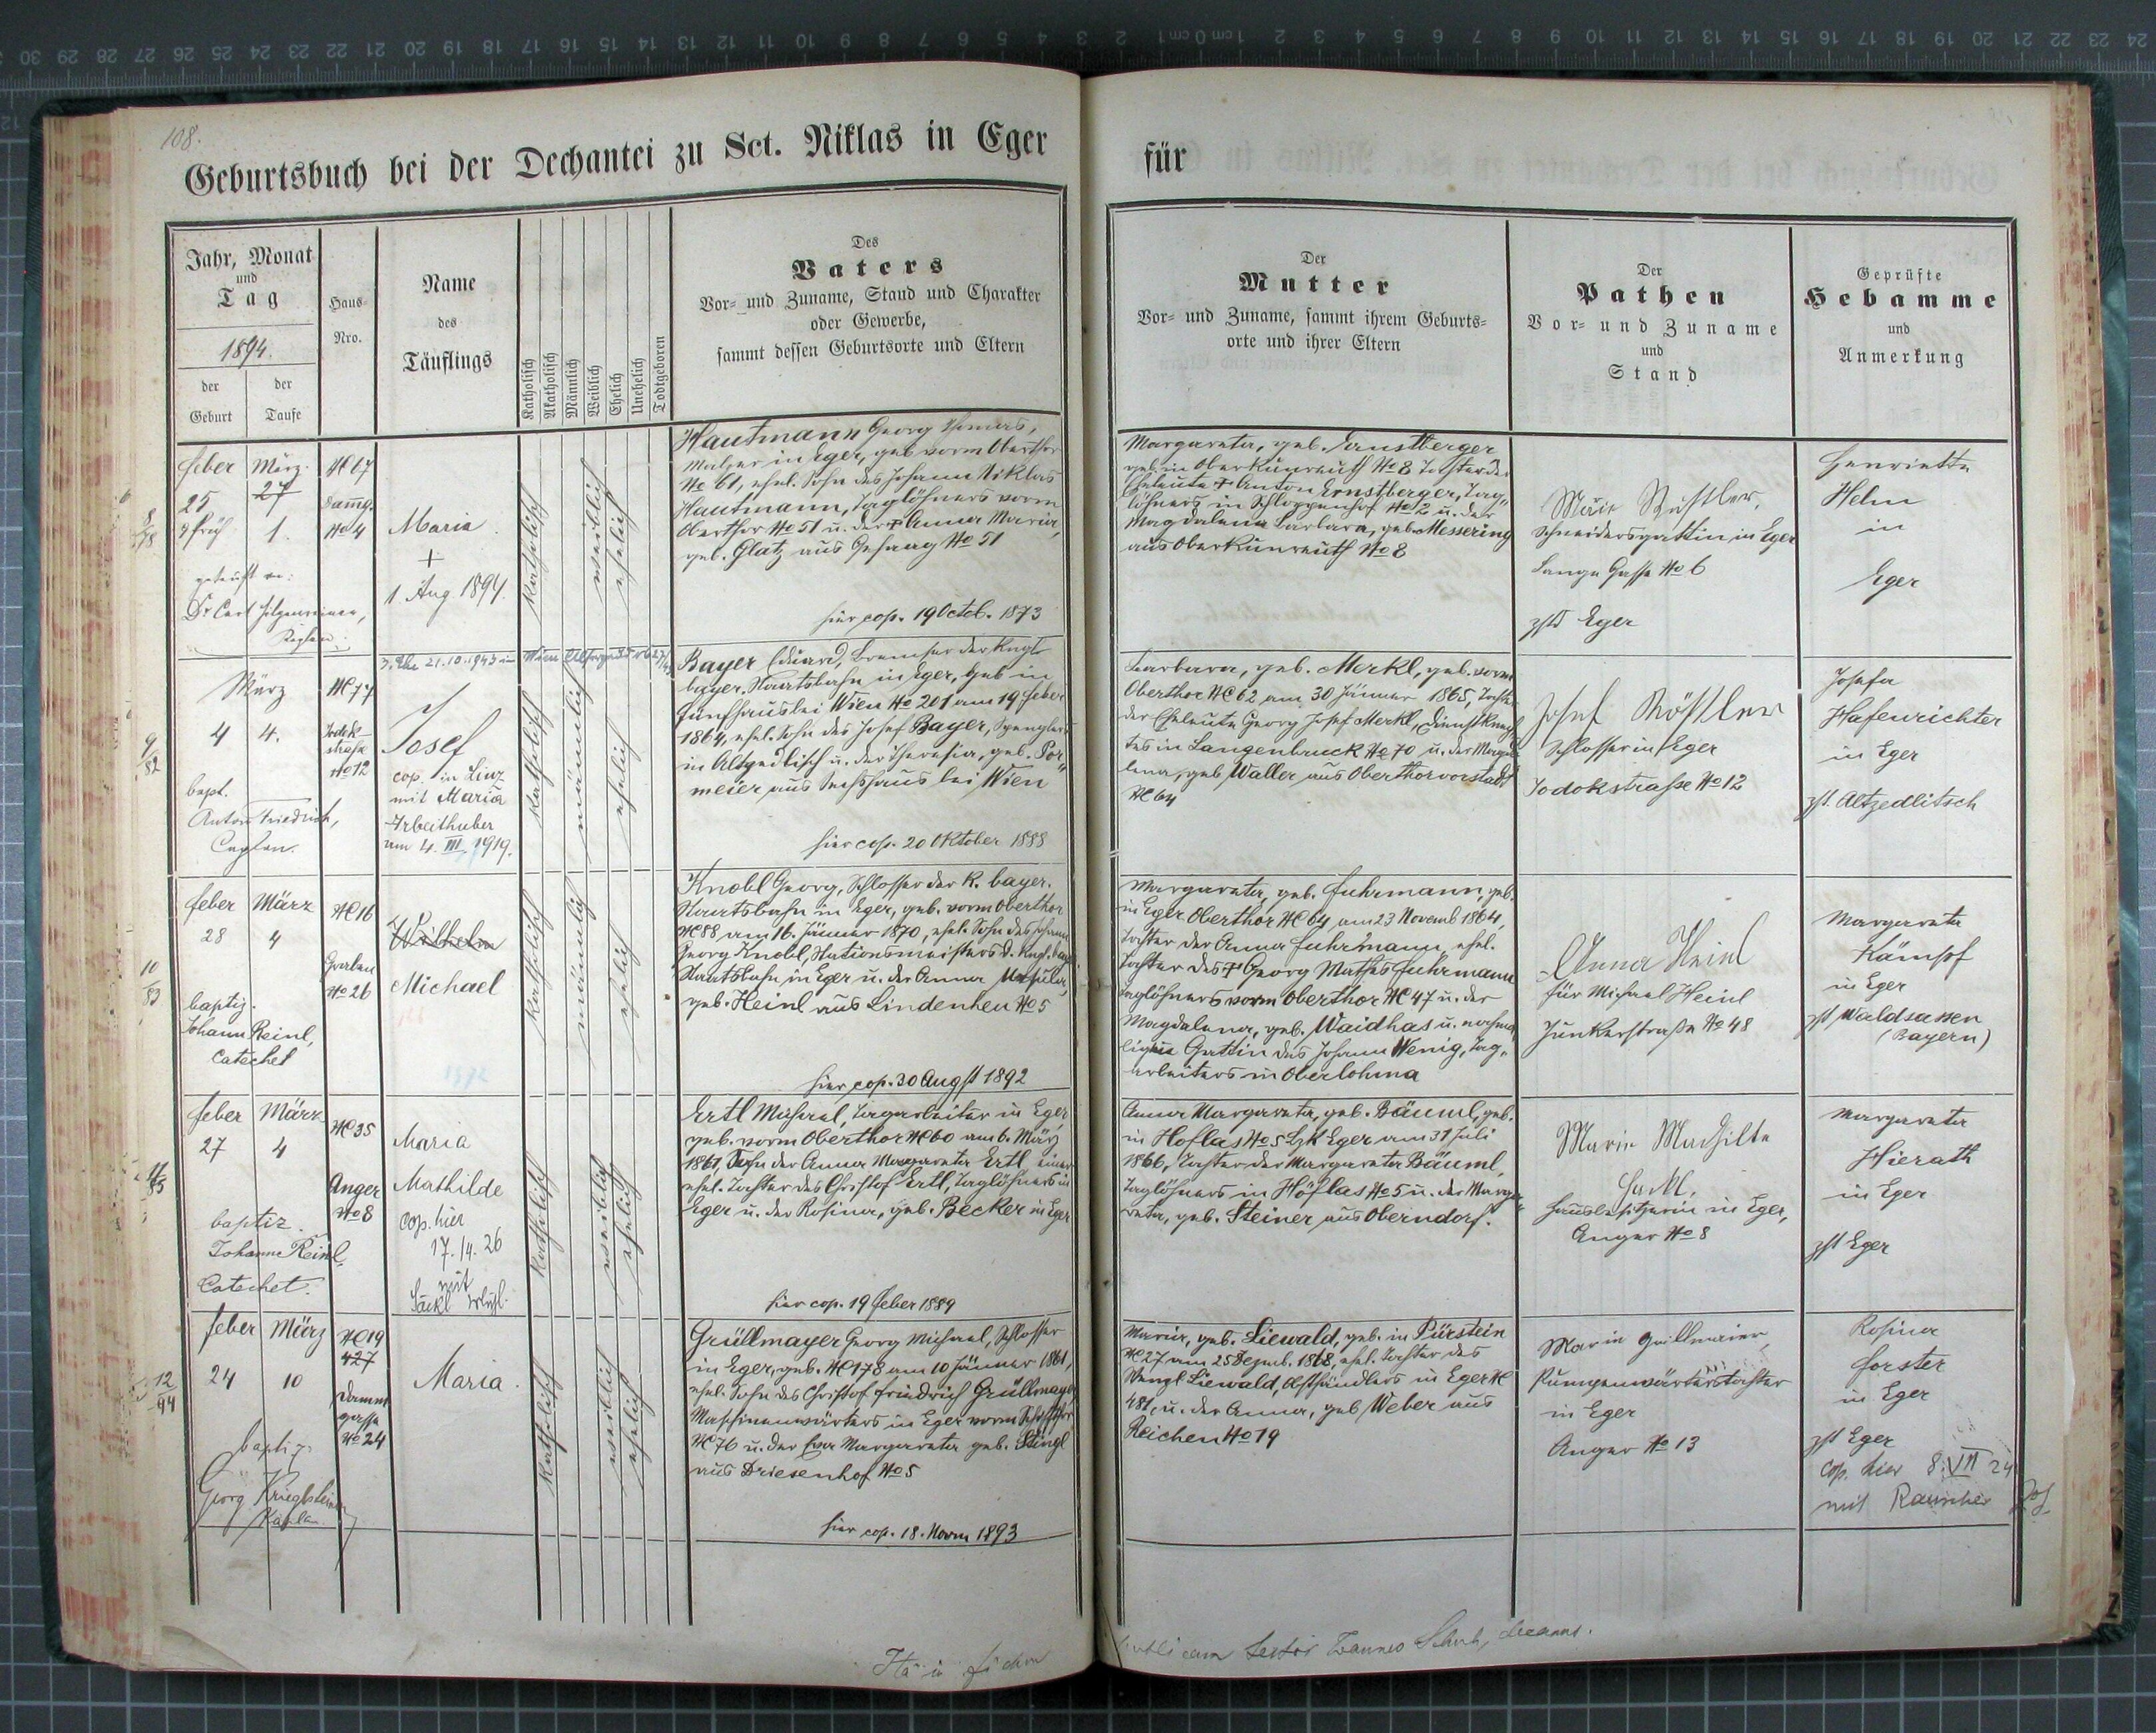 108.
Geburtsbuch bei der Dechantei zu Sct. Niklas in Eger
für
Jahr, Monat
und
Tag
1894.
der Geburt
der Taufe
Haus-
Nro.
Name
des
Täuflings
Katholisch
Akatholisch
Männlich
Weiblich
Ehelich
Unehelich
Todtgeboren
Des
Vaters
Vor- und Zuname, Stand und Charakter
oder Gewerbe,
sammt dessen Geburtsorte und Eltern
Der
Mutter
Vor- und Zuname, sammt ihrem Geburts-
orte und ihrer Eltern
Der
Pathen
Vor- und Zuname
und
Stand
Geprüfte
Hebamme
und
Anmerkung
feber März
25 27
4 früh 1.
getauft v.:
Dr Carl
NC 67
No 4
Maria
+
1. Aug. 1894.
katholisch
weiblich
ehelich
Hautmann Georg Thomas,
in Eger, geb. vorm Oberthor
No 61, ehel. Sohn des Johann Niklas
Hautmann, Taglöhners vorm
Oberthor No 51 u. der + Anna Maria,
geb. Glatz aus No 51
hier cop. 19 Octob. 1873
Margareta, geb. Ernstberger
geb. in Oberkunreuth No 8 Tochter der
Eheleute + Anton Ernstberger, Tag-
löhners in Schloppenhof No 2 u. der
Magdalena Barbara, geb. Messering
aus Oberkunreuth No 8
Schneidersgattin in Eger
Lange Gasse No 6
zst Eger
Henriette
Helm
in
Eger
März
4 4.
bapt.
Anton Friedrich,
Caplan.
NC 77
Jodok-
strasse
No 12
21.10.1943 in Wien
Josef
cop. in Linz
mit Maria
Arbeithuber
am 4. III. 1919.
katholisch
männlich
ehelich
Bayer Eduard, Bremser der Kngl.
bayer. Staatsbahn in Eger, geb. in
Fünfhaus bei Wien No 201 am 19 feber
1864, ehel. Sohn des Josef Bayer, Spenglers
in Altzedlisch u. der Theresia, geb. Por-
meier aus Sechshaus bei Wien
hier cop. 20 Oktober 1888
Barbara, geb. Merkl, geb. vorm
Oberthor NC 62 am 30 Jänner 1865, Tochter
der Eheleute Georg Josef Merkl, Dienstknech-
tes in Langenbruck No 70 u. der Magda-
lena, geb Waller aus Oberthorvorstadt
NC 64
Josef Rößler
Schlosser in Eger
Jodokstrasse No 12
Josefa
Hafenrichter
in Eger
zst. Altzedlitsch
feber März
28 4
baptiz.
Johann Reinl,
Catechet
NC 16
Graben
No 26
Wilhelm
Michael
katholisch
männlich
ehelich
Knobl Georg, Schlosser der K. bayer.
Staatsbahn in Eger, geb. vorm Oberthor
NC 88 am 16. Jänner 1870, ehel. Sohn des Johann
Georg Knobl, Stationsmeisters d. Kngl. bay.
Staatsbahn in Eger u. der Anna Ursula,
geb. Heinl aus Lindenheu No 5
hier cop. 30 Augst 1892
Margareta, geb. Fuhrmann, geb.
in Eger Oberthor NC 64 am 23 Novemb 1864,
Tochter der Anna Fuhrmann, ehel.
Tochter des + Georg Mathes Fuhrmann
Taglöhners vorm Oberthor NC 47 u. der
Magdalena, geb. Waidhas u. nachma-
ligen Gattin des Johann Wenig, Tag-
arbeiters in Oberlohma
Anna Heinl
für Michael Heinl
Junkerstraße No 48
Margareta
Kämpf
in Eger
zst Waldsassen
(Bayern)
feber März
27 4
baptiz.
Johann Reinl
Catechet.
NC 35
Anger
No 8
Maria
Mathilde
cop. hier
17./4. 26
mit
katholisch
weiblich
ehelich
Ertl Michael, Tagarbeiter in Eger,
geb. vorm Oberthor NC 60 am 6. März
1861, Sohn der Anna Margareta Ertl einer
ehel. Tochter des Christof Ertl, Taglöhners in
Eger u. der Rosina, geb. Becker in Eger
hier cop. 19 feber 1889
Anna Margareta, geb. Bäuml, geb.
in Hoflas No 5 Bzk Eger am 31 Juli
1866, Tochter der Margareta Bäuml,
Taglöhners in Höflas No 5 u. der Marga-
reta, geb. Steiner aus Oberndorf.
Marie Mathilte
Hausbesitzerin in Eger,
Anger No 8
Margareta
Hierath
in Eger
zst Eger
feber März
24 10
baptiz.
Georg
Kaplan.
NC 19
427
Damm-
gasse
No 24
Maria.
katholisch
weiblich
ehelich
Grüllmayer Georg Michael, Schlosser
in Eger, geb. NC 178 am 10 Jänner 1861,
ehel. Sohn des Christof Friedrich Grüllmayer
Maschinenwärters in Eger vorm
NC 76 u. der Eva Margareta geb. Stingl
aus Driesenhof No 5
hier cop. 18. Novm 1893
Maria, geb. Liewald, geb. in Pürstein
NC 27 am 25 Dezmb. 1868, ehel. Tochter des
Wenzl Liewald, Obsthändlers in Eger NC
481, u. der Anna, geb Weber aus
Reichen No 19
Marie Grillmaier,
in Eger
Anger No 13
Rosina
Forster
in Eger
zst Eger
cop. hier 8. VII 24
mit Rauscher